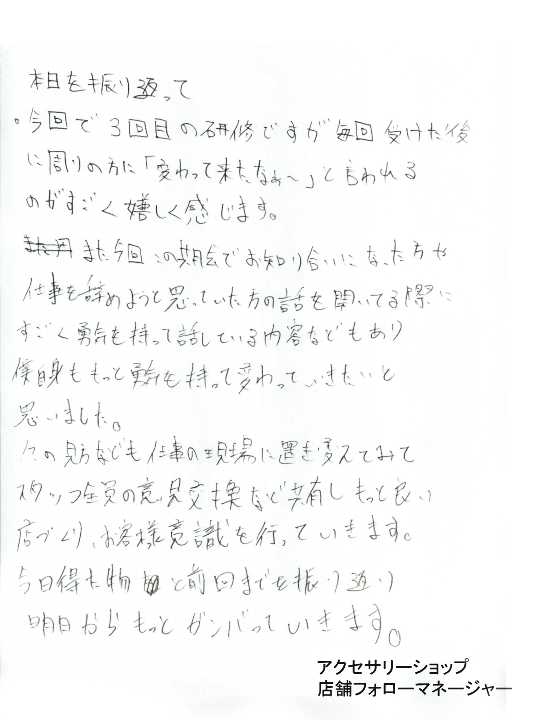 本日を振り返って
。今回で3回目の研修ですが毎回受けた後
に周りの方に「変わって来たなぁ～」と言われる
のがすごく嬉しく感じます。
また今回この期会でお知り合いになった方や
仕事を辞めようと思っていた方の話を聞いてる際に
すごく勇気を持って話している内容などもあり
僕自身ももっと勇気を持って変わっていきたいと
思いました。
の見方なども仕事の現場に置き変えてみて
スタッフ全員の意見交換など共有しもっと良い
店づくり、お客様意識を行っていきます。
今日得た物と前回までを振り返り
明日からもっとガンバっていきます。
アクセサリーショップ
店舗フォローマネージャー